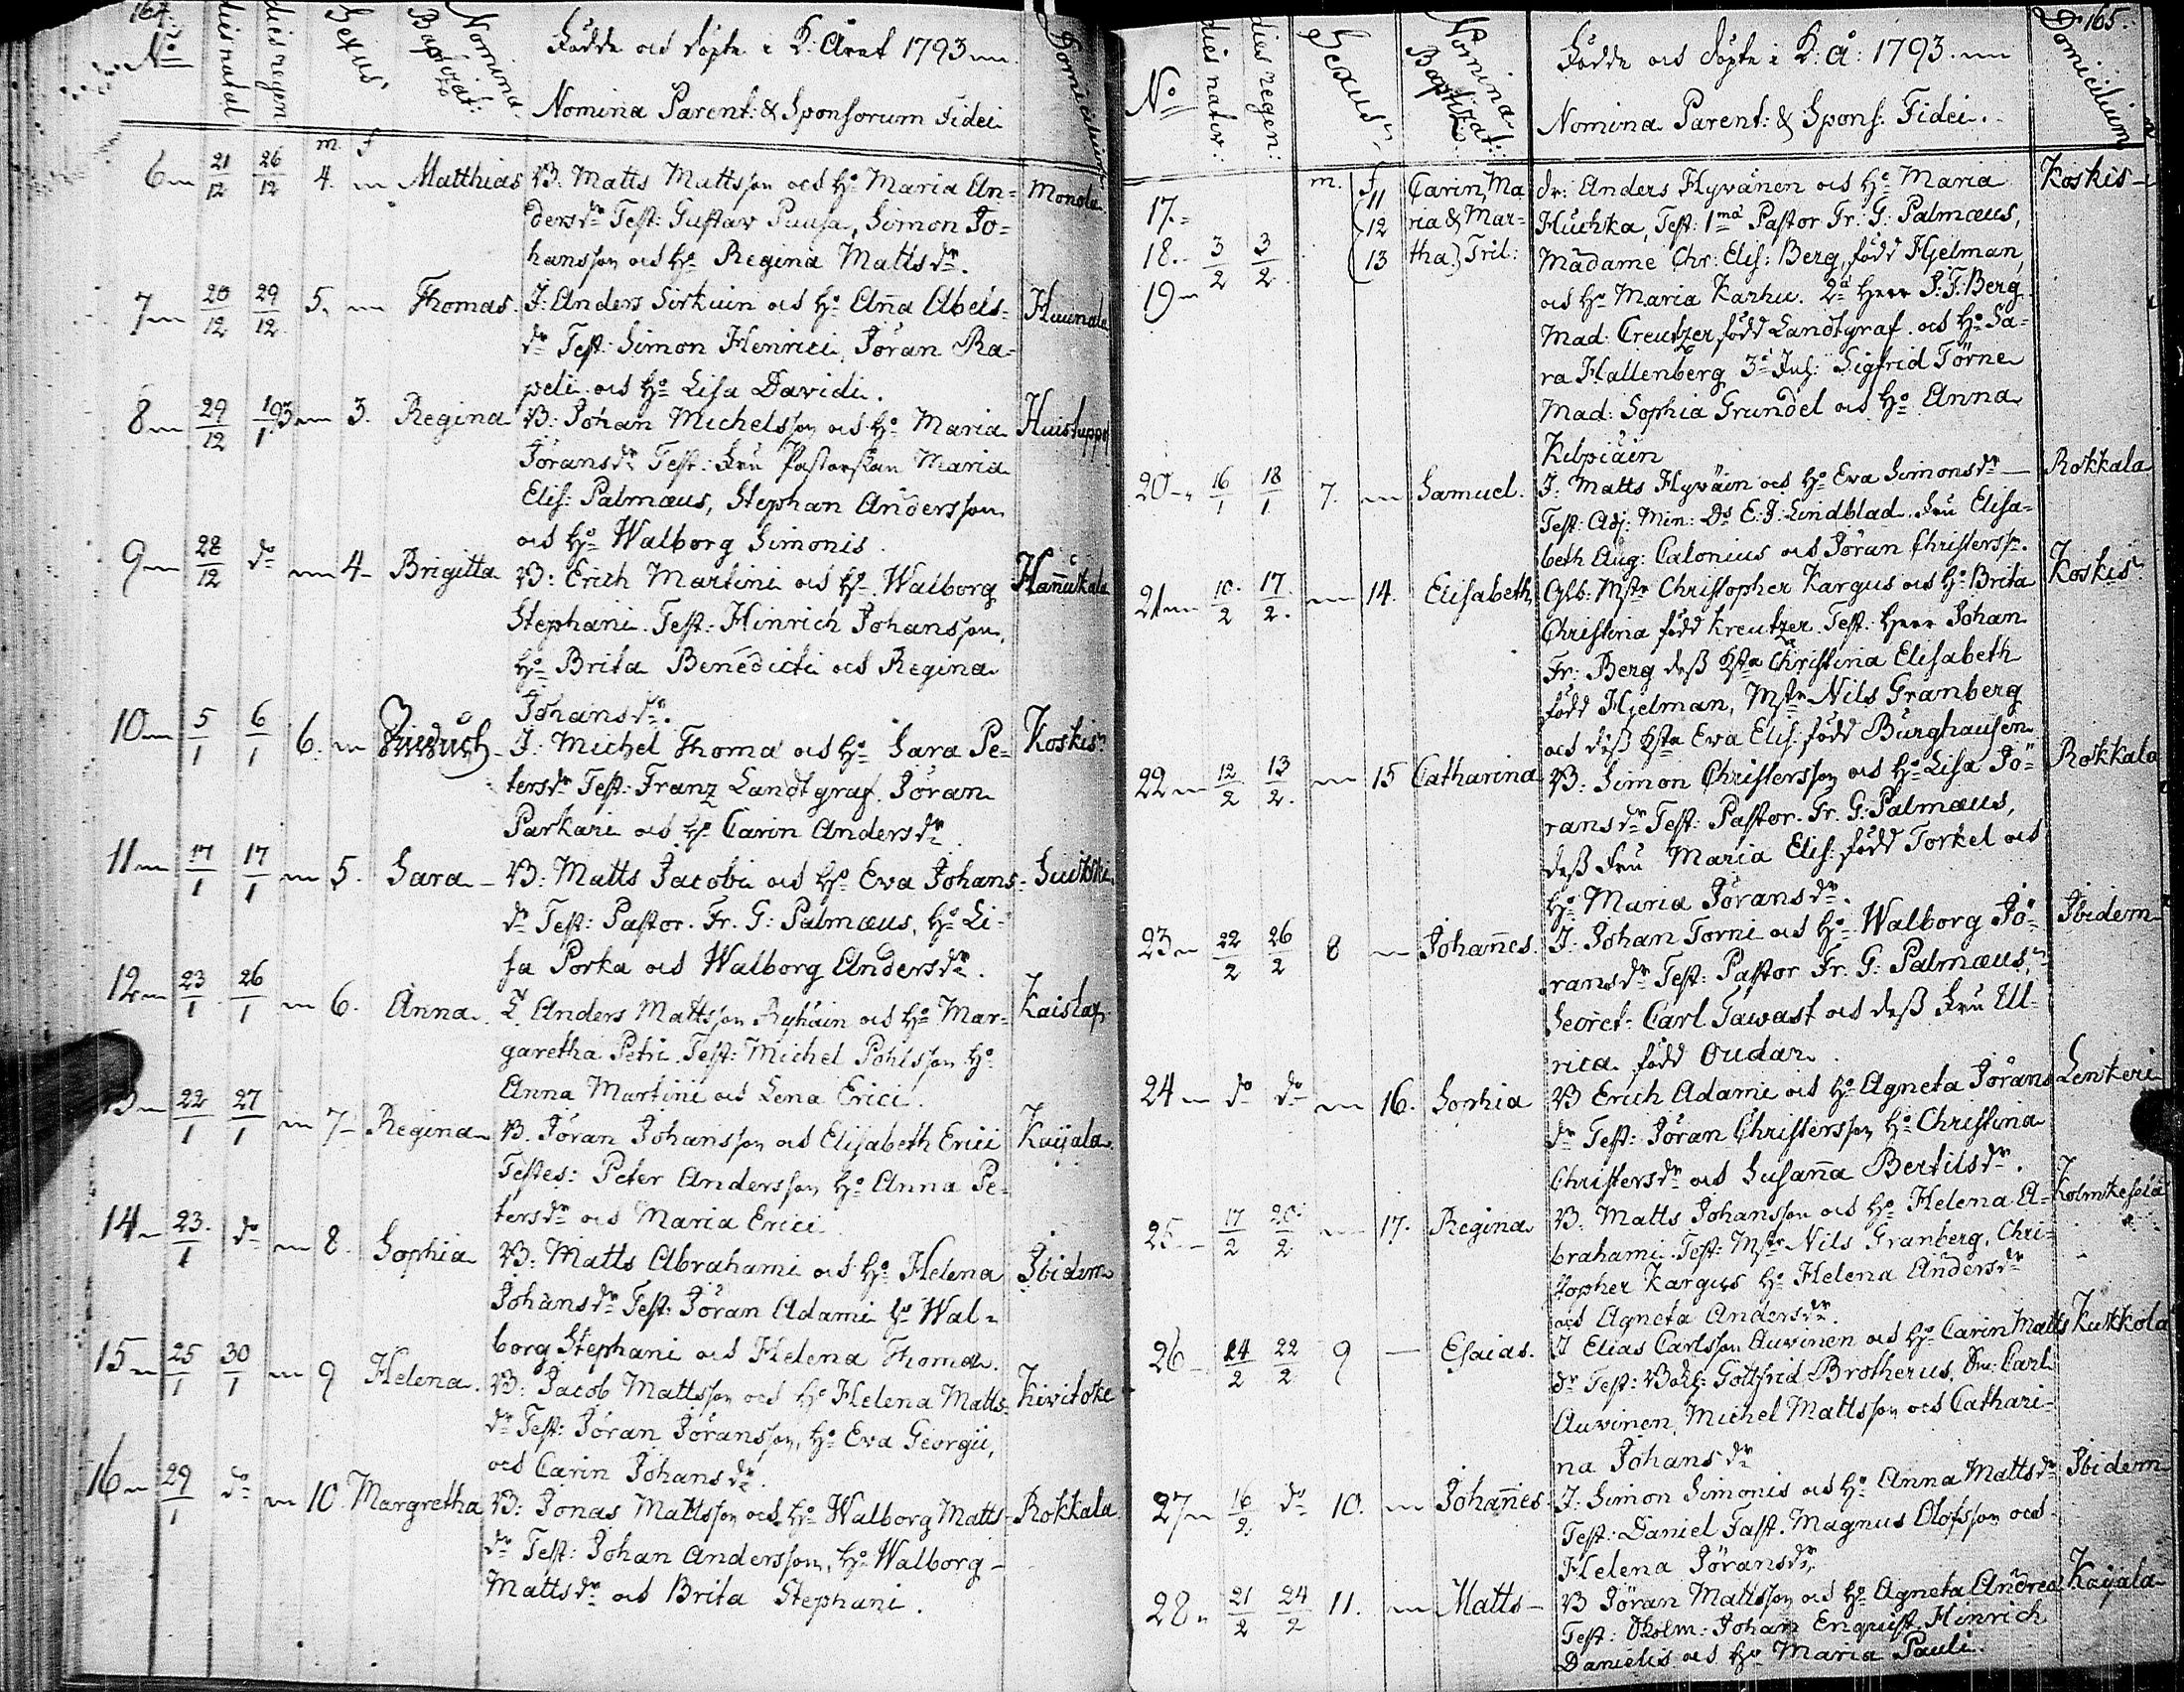 164.
No
dies natal
dies regen
Sexus
Nomina Baptizat:
Födde och döpte i K: Året 1793
Nomina Parent: & Sponsorum Fidei
Domicilium
m. f
6 21/12 26/12 4. Matthias B. Matts Mattsson och Ho Maria An= Monola
dersdr Test: Gustav Pausa, Simon Jo=
hansson och Ho Regina Mattsdr.
7 20/12 29/12 5. Thomas. I: Anders Sirkiäin och Ho Anna Abels= Haunala
dr Test: Simon Henrici, Jöran Ra=
peli och Ho Lisa Davidi.
8 29/12 1/1 93 3. Regina B: Johan Michelsson och Ho Maria
Jöransdr Test: Fru Pastorskan Maria
Elis: Palmæus, Stephan Andersson
och Ho Walborg Simonis.
9 28/12 do 4 Brigitta B: Erich Martini och Ho Walborg Hannukala
Stephani. Test: Hinrich Johansson,
Ho Brita Benedicti och Regina
Johansdr.
10 5/1 6/1 6. I: Michel Thomæ och Ho Sara Pe= Koskis
tersdr Test: Franz Landtgraf. Jöran
Parkari och Ho Carin Andersdr
11 17/1 17/1 5. Sara B: Matts Jacobi och Ho Eva Johans=
dr Test: Pastor. Fr. G: Palmæus, Ho Li=
sa Porka och Walborg Andersdr.
12 23/1 26/1 6. Anna. Anders Mattsson Ryhäin och Ho Mar=
garetha Petri. Test: Michel Pohlsson Ho
Anna Martini och Lena Erici.
13 22/1 27/1 7 Regina B. Jöran Johansson och Elisabeth Erici Kaijala
Testes: Peter Andersson, Ho Anna Pe=
tersdr och Maria Erici
14 23/1 do 8. Sophia B: Matts Abrahami och Ho Helena Ibidem
Johansdr Test: Jöran Adami Ho Wal=
borg Stephani och Helena Thomæ.
15 25/1 30/1 9 Helena. B: Jacob Mattsson och Ho Helena Matts= Kivitoke
dr Test: Jöran Jöransson, Ho Eva Georgii,
och Carin Johansdr.
16 29/1 do 10. Margretha B: Jonas Mattsson och Ho Walborg Matts= Rokkala
dr Test: Johan Andersson, Ho Walborg
Mattsdr och Brita Stephani.
165.
No
dies nativ:
dies regen:
Sexus
Nomina Baptizat:
Födde och döpte i K: å: 1793.
Nomina Parent: & Spons: Fidei.
Domicilium
m. f
17. 11 Carin, Ma dr: Anders Hyvänen och Ho Maria Koskis
12 ria & Mar= Huchka, Test: 1ma Pastor Fr: G: Palmæus,
18. 3/2 3/2 13 tha} Tril: Madame Chr: Elis: Berg, född Hjelman,
19 och Ho Maria Karhu. 2a Herr J: F: Berg
Mad: Creutzer född Landtgraf. och Ho Sa=
ra Hallenberg 3a Insp: Sigfrid Törne
Mad: Sophia Grundel och Ho Anna
Kilpiäin
20 16/1 18/1 7. Samuel. I: Matts Hyväin och Ho Eva Simonsdr Rokkala
Test: Adj: Min: Ds E: J: Lindblad. Fru Elisa=
beth Aug: Calonius och Jöran Christerss:
21 10/2 17/2 14. Elisabeth Glb: Mstr Christopher Kargus och Ho Brita Koskis
Christina född Kreutzer. Test: Herr Johan
Fr: Berg dess Hstr Christina Elisabeth
född Hjelman, Mstr Nils Gramberg
och dess Hstr Eva Elis: född Burghausen
22 12/2 13/2 15 Catharina B: Simon Christersson och Ho Lisa Jö= Rokkala
ransdr Test: Pastor. Fr. G: Palmæus,
dess Fru Maria Elis: född Torkel och
Ho Maria Jöransdr.
23 22/2 26/2 8 Johannes. I: Johan Torni och Ho Walborg Jö= Ibidem
ransdr Test: Pastor Fr. G: Palmæus,
Secret: Carl Tawast och dess Fru Ul=
rica född Oudar.
24 do do 16. Sophia B Erich Adami och Ho Agneta Jörans Lenkeri
dr Test: Jöran Christersson, Ho Christina
Christersdr och Susanna Bertilsdr.
25 17/2 20/2 17. Regina B: Matts Johansson och Ho Helena A= Kolmikeselä
brahami. Test: Mstr Nils Granberg, Chri=
stopher Kargus Ho Helena Andersdr
och Agneta Andersdr.
26 14/2 22/2 9 Esaias. I Elias Carlsson Auvinen och Ho Carin Matts Kukkola
dr Test: Bokh: Gottfrid Brotherus, Carl
Auvinen, Michel Mattsson och Cathari=
na Johansdr
27 16/2 do 10. Johannes I: Simon Simonis och Ho Anna Mattsdr Ibidem
Test: Daniel Tast. Magnus Olofsson och
Helena Jöransdr,
28 21/2 24/2 11. Matts B Jöran Mattsson och Ho Agneta Andreæ Kaijala
Test: Johan Enquist, Hinrich
Danielis och Ho Maria Pauli.